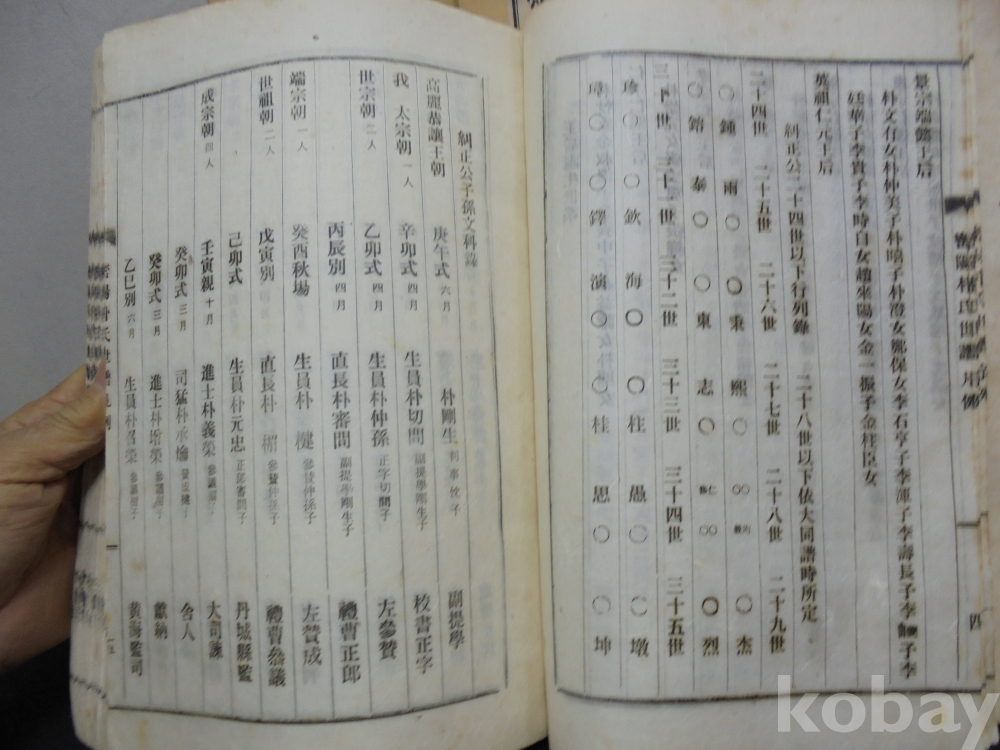 景宗端懿王后
朴文有女朴仲美子朴暿子朴澄女鄭保女李石亨子李渾子李壽長子李 子李
廷華子李貴子李時白女趙來陽女金一振子金柱臣女
英祖仁元王后
糾正公二十四世以下行列錄 二十八世以下依大同譜時所定
二十四世 二十五世 二十六世 二十七世 二十八世 二十九世
〇鍾 雨〇 〇秉 熙〇 〇〇 〇杰
〇鎔 泰〇 〇東 志〇 〇〇 〇烈
三十世 三十一世 三十二世 三十三世 三十四世 三十五世
珍〇 〇欽 海〇 〇柱 愚〇 〇墩
〇鐸 演〇 〇桂 思〇 〇坤
密陽朴氏世譜
四
糾正公子孫文科錄
高麗恭讓王朝 庚午式 六月 朴剛生 判事忱子 副提學
我 太宗朝 一人 辛卯式 四月 生員朴切問 副提學剛生子 校書正字
世宗朝 二人 乙卯式 四月 生員朴仲孫 正字切問子 左參贊
丙辰別 四月 直長朴審問 副提學剛生子 禮曹正郎
端宗朝 一人 癸酉秋場 生員朴楗 參贊仲孫子 左贊成
世祖朝 二人 戊寅別 直長朴 參贊仲孫子 禮曹參議
己卯式 生員朴元忠 正郎審問子 丹城縣監
成宗朝 四人 壬寅親 十月 進士朴義榮 參議 子 大司諫
癸卯式 三月 司猛朴承爚 贊成楗子 舍人
癸卯式 三月 進士朴增榮 參議 子 獻納
乙巳別 六月 生員朴召榮 參議 子 黃海監司
kobay